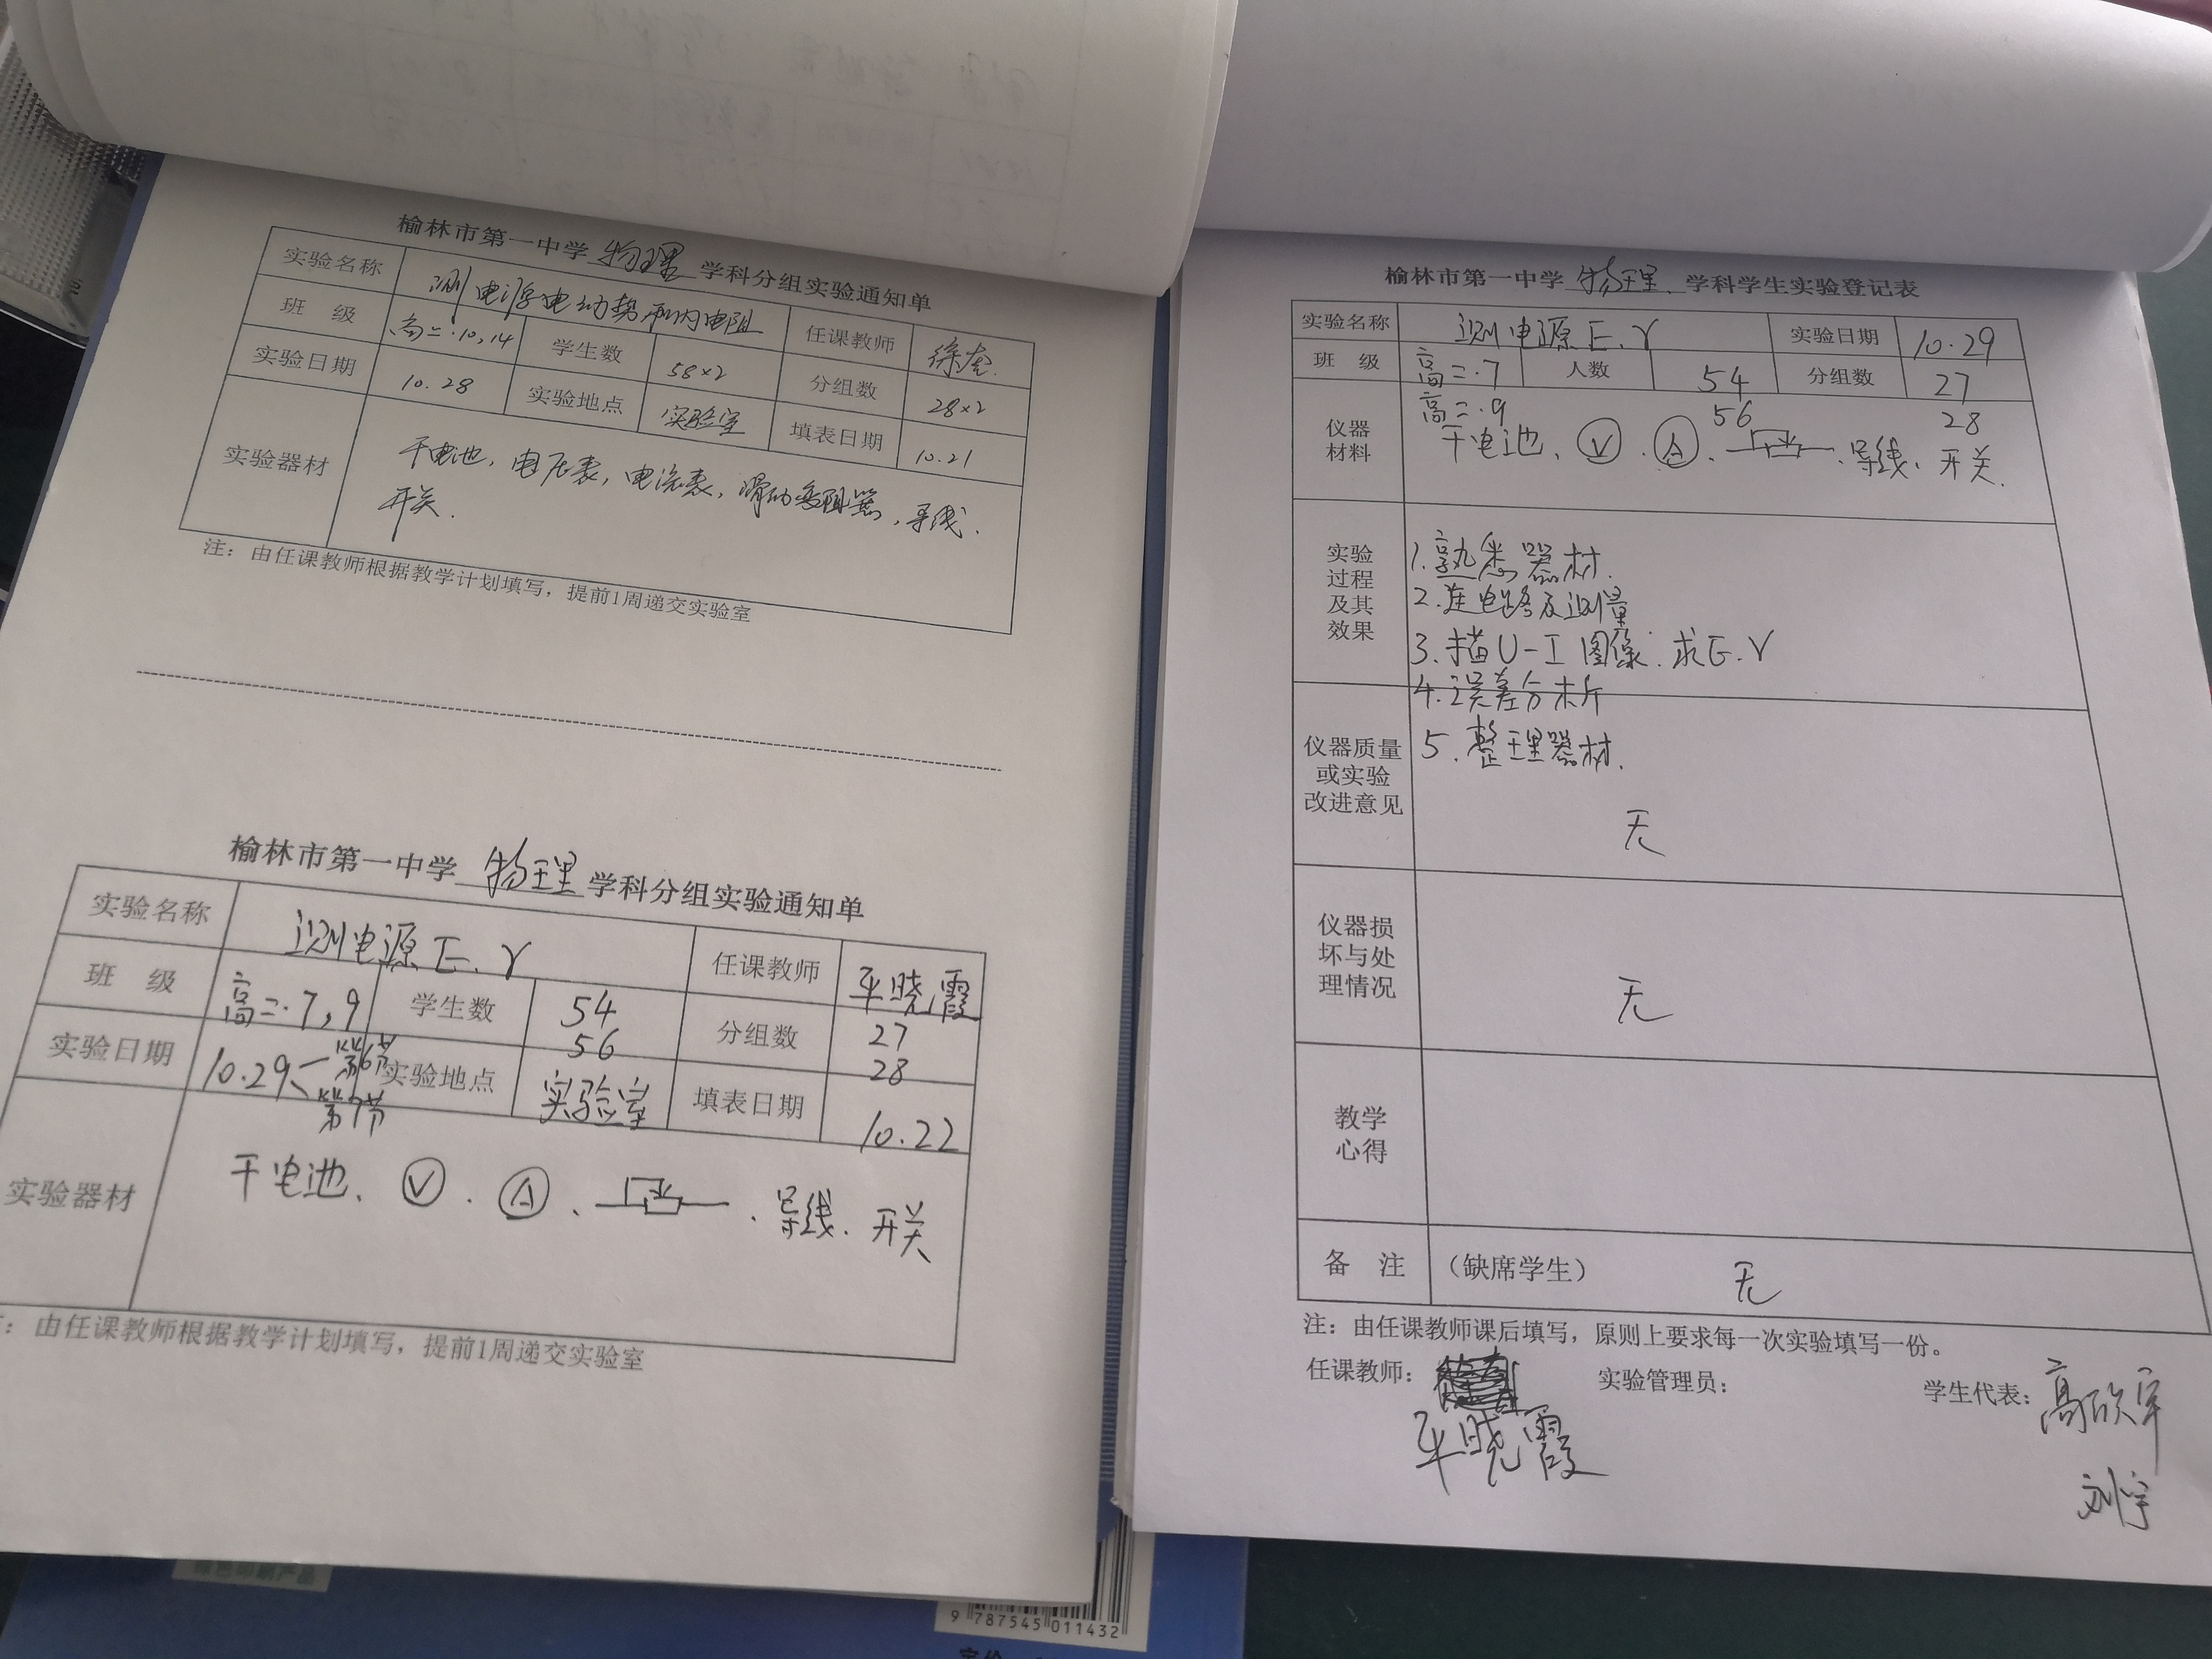 榆林市第一中学 物理 学科分组实验通知单
实验名称 测电源电动势和内电阻 任课教师 徐
班 级 高二.10,14 学生数 58×2 分组数 28×2
实验日期 10.28 实验地点 实验室 填表日期 10.21
实验器材 干电池，电压表，电流表，滑动变阻器，导线.
开关.
注：由任课教师根据教学计划填写，提前1周递交实验室
榆林市第一中学 物理 学科分组实验通知单
实验名称 测电源E、r 任课教师 平晓霞
班 级 高二.7,9 学生数 54 56 分组数 27 28
实验日期 10.29 第6节 第7节 实验地点 实验室 填表日期 10.22
实验器材 干电池、V、A、导线、开关
：由任课教师根据教学计划填写，提前1周递交实验室
榆林市第一中学 物理 学科学生实验登记表
实验名称 测电源E、r 实验日期 10.29
班 级 高二.7 人数 54 分组数 27
高二.9 56 28
仪器
材料
干电池、V、A、导线、开关.
实验
过程
及其
效果
1.熟悉器材.
2.连电路及测量
3.描U-I图像.求E.r
4.误差分析
5.整理器材.
仪器质量
或实验
改进意见
无
仪器损
坏与处
理情况
无
教学
心得
备 注 （缺席学生） 无
注：由任课教师课后填写，原则上要求每一次实验填写一份。
任课教师： 实验管理员： 学生代表：高欣宇
平晓霞
刘宇
9 787545 011432